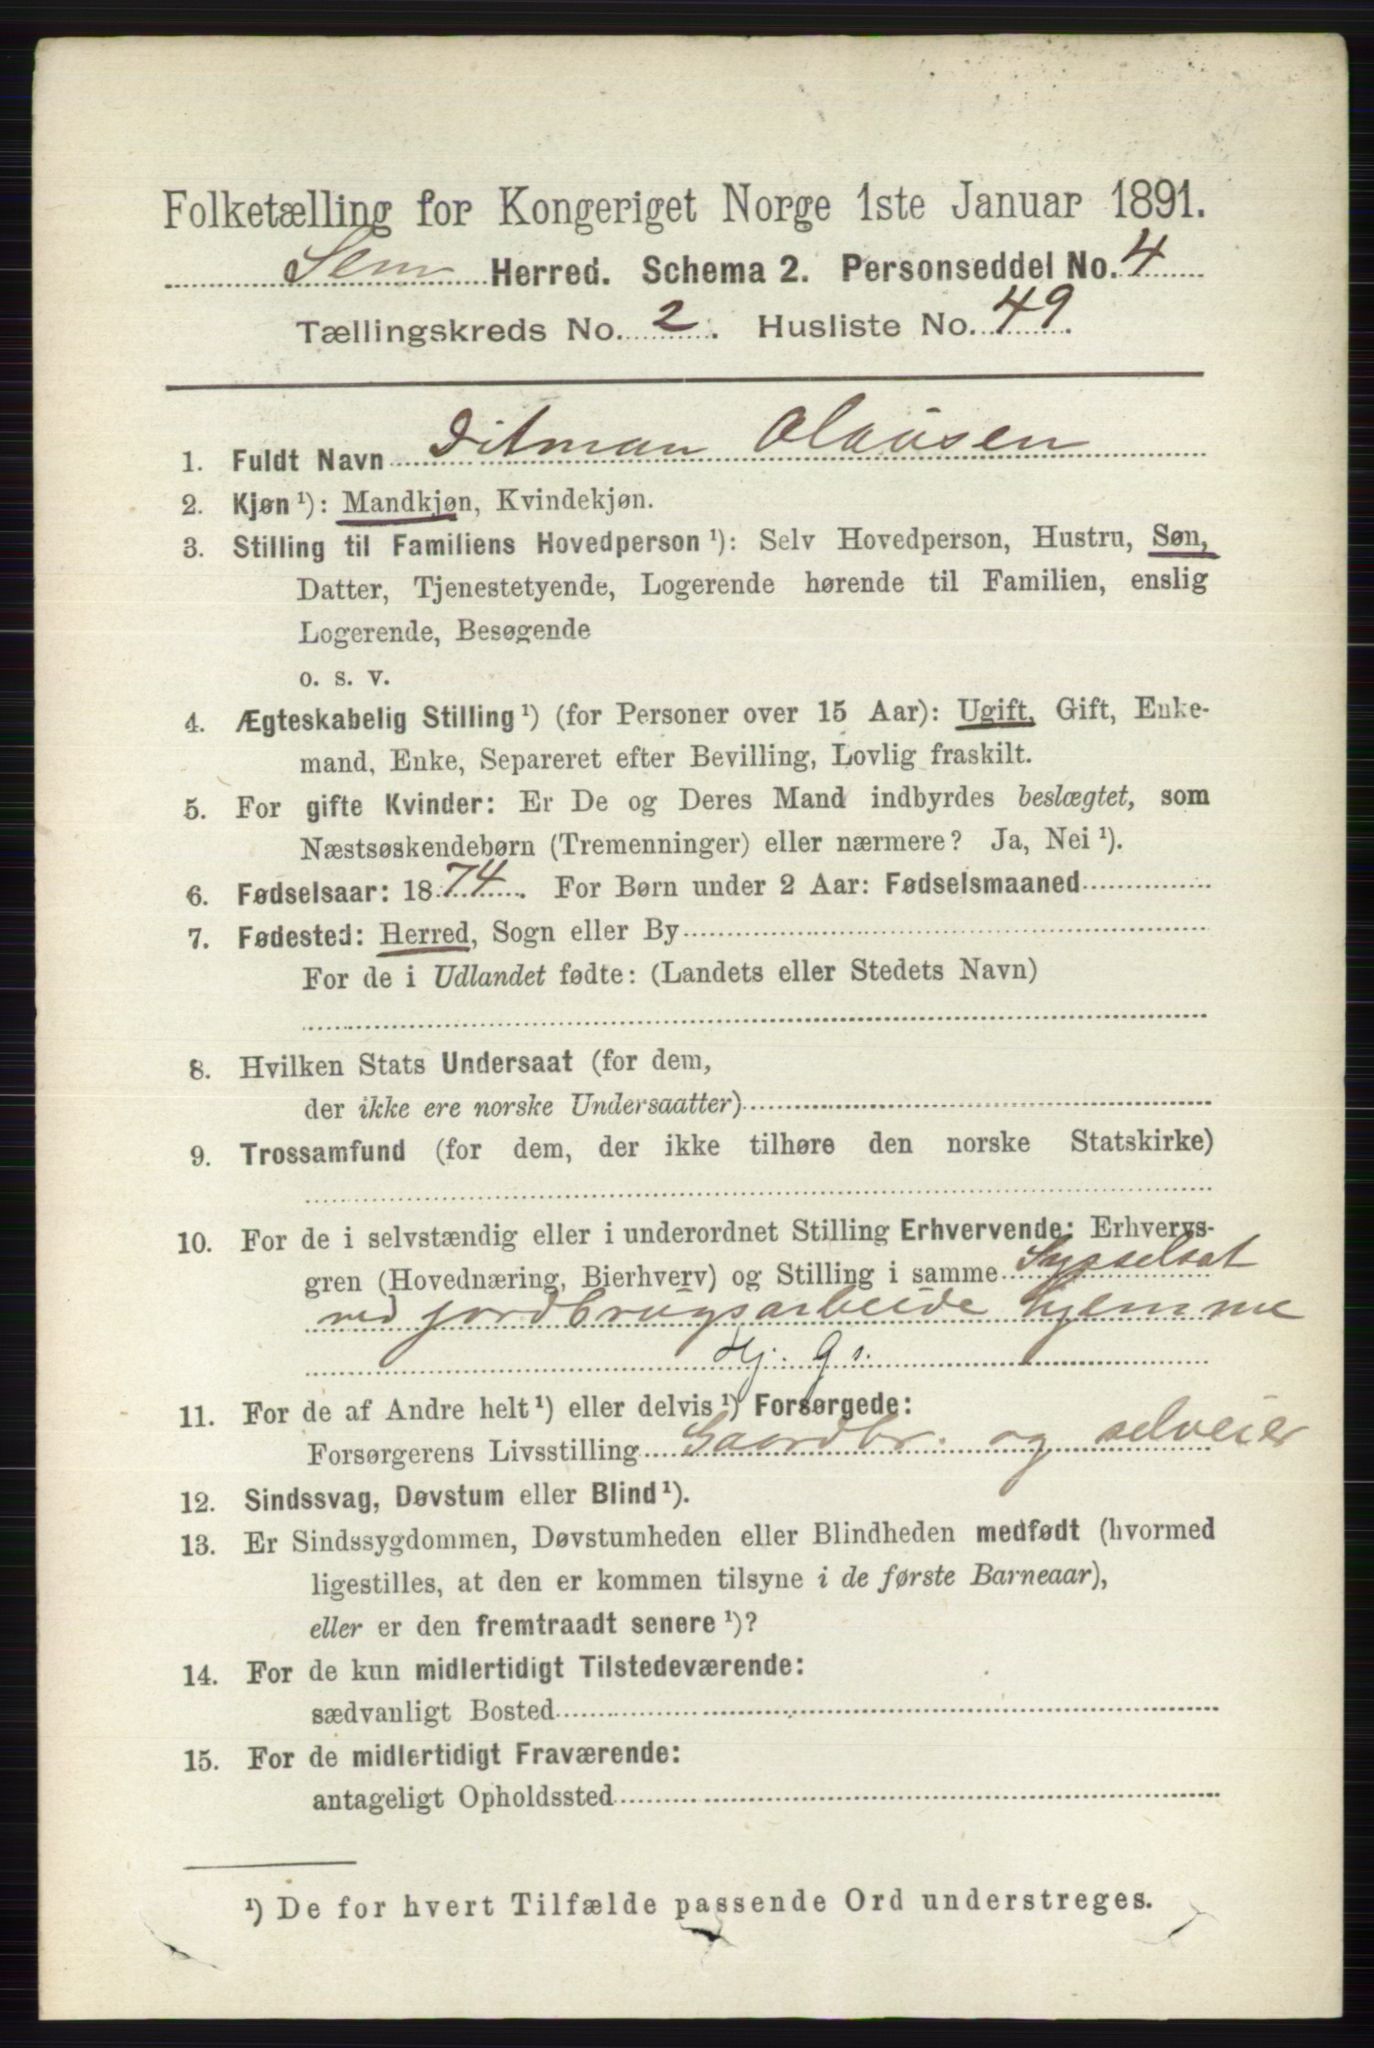 Folketælling for Kongeriget Norge 1ste Januar 1891.
Sem Herred. Schema 2. Personseddel No. 4
Tællingskreds No. 2. Husliste No. 49.
1. Fuldt Navn Ditman Olausen
2. Kjøn¹): Mandkjøn, Kvindekjøn.
3. Stilling til Familiens Hovedperson¹): Selv Hovedperson, Hustru, Søn,
Datter, Tjenestetyende, Logerende hørende til Familien, enslig
Logerende, Besøgende
o. s. v.
4. Ægteskabelig Stilling¹) (for Personer over 15 Aar): Ugift, Gift, Enke-
mand, Enke, Separeret efter Bevilling, Lovlig fraskilt.
5. For gifte Kvinder: Er De og Deres Mand indbyrdes beslægtet, som
Næstsøskendebørn (Tremenninger) eller nærmere? Ja, Nei¹).
6. Fødselsaar: 1874. For Børn under 2 Aar: Fødselsmaaned
7. Fødested: Herred, Sogn eller By
For de i Udlandet fødte: (Landets eller Stedets Navn)
8. Hvilken Stats Undersaat (for dem,
der ikke ere norske Undersaatter)
9. Trossamfund (for dem, der ikke tilhøre den norske Statskirke)
10. For de i selvstændig eller i underordnet Stilling Erhvervende: Erhvervs-
gren (Hovednæring, Bierhverv) og Stilling i samme Sysselsat
ved jordbrugsarbeide hjemme
Hj. g s.
11. For de af Andre helt¹) eller delvis¹) Forsørgede:
Forsørgerens Livsstilling Gaardbr. og selveier
12. Sindssvag, Døvstum eller Blind¹).
13. Er Sindssygdommen, Døvstumheden eller Blindheden medfødt (hvormed
ligestilles, at den er kommen tilsyne i de første Barneaar),
eller er den fremtraadt senere¹)?
14. For de kun midlertidigt Tilstedeværende:
sædvanligt Bosted
15. For de midlertidigt Fraværende:
antageligt Opholdssted
¹) De for hvert Tilfælde passende Ord understreges.